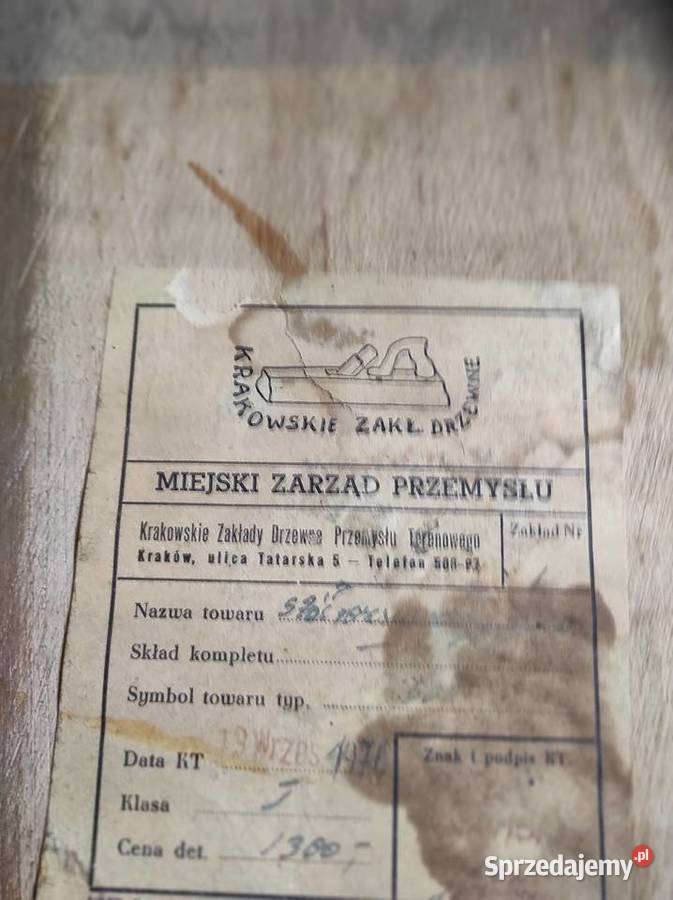 KRAKOWSKIE ZAKŁ. DRZEWNE
MIEJSKI ZARZĄD PRZEMYSŁU
Krakowskie Zakłady Drzewne Przemysłu Terenowego
Kraków, ulica Tatarska 5 — Telefon
Zakład Nr
Nazwa towaru
Skład kompletu
Symbol towaru typ.
Data KT 19 Wrześ 197
Znak i podpis KT.
Klasa I
Cena det. 1300,-
Sprzedajemy.pl